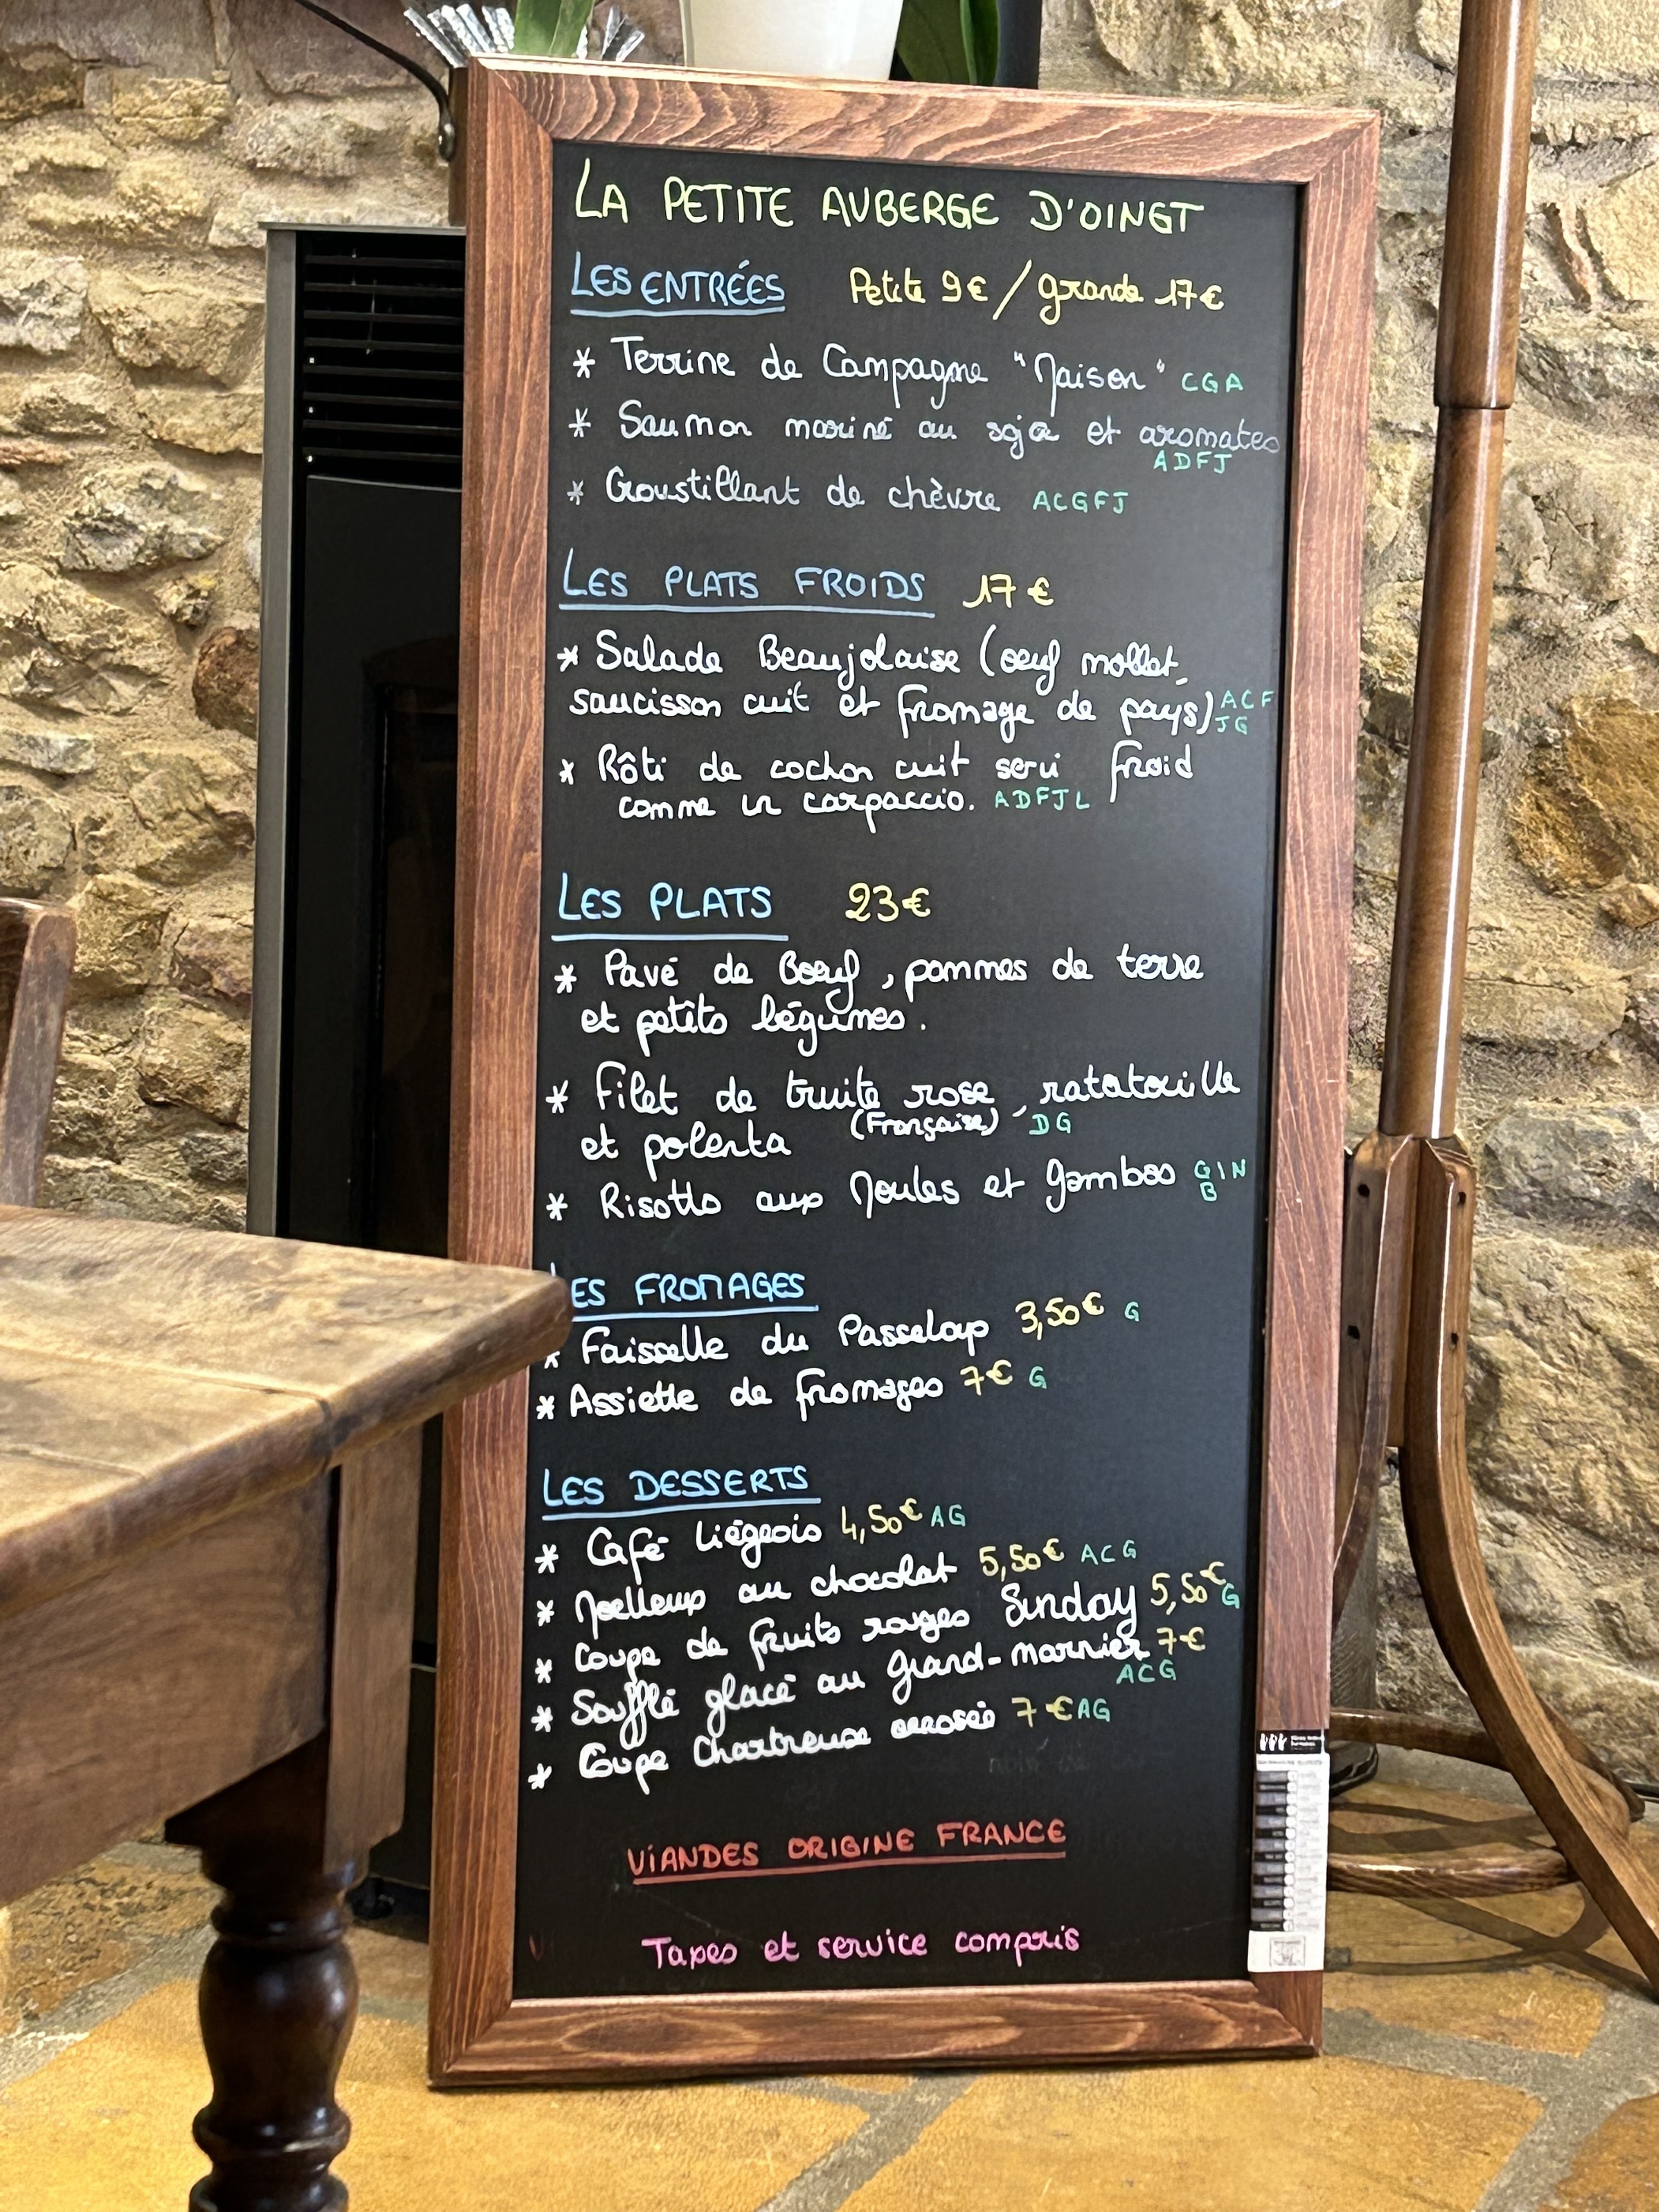 LA PETITE AUBERGE D'OINGT
LES ENTRÉES Petite 9€ / grande 17€
* Terrine de Campagne "Maison" CGA
* Saumon mariné au soja et aromates
ADFJ
* Croustillant de chèvre ACGFJ
LES PLATS FROIDS 17€
* Salade Beaujolaise (oeuf mollet,
saucisson cuit et fromage de pays) ACF
JG
* Rôti de cochon cuit servi froid
comme un carpaccio. ADFJL
LES PLATS 23€
* Pavé de Boeuf, pommes de terre
et petits légumes.
* Filet de truite rose, ratatouille
(Française) DG
et polenta
* Risotto aux Moules et gambas GIN
B
ES FROMAGES
* Faisselle du Passeloup 3,50€ G
* Assiette de fromages 7€ G
LES DESSERTS
* Café Liégeois 4,50€ AG
* Moelleux au chocolat 5,50€ ACG
* Coupe de fruits rouges Sunday 5,50€ G
* Soufflé glacé au grand-marnier 7€
ACG
* Coupe Chartreuse arrosée 7€ AG
VIANDES ORIGINE FRANCE
Taxes et service compris